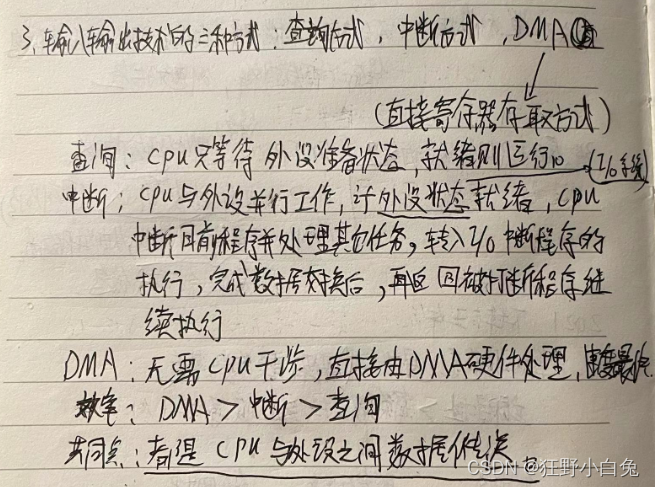 3、输入输出技术的三种方式：查询方式，中断方式，DMA
(直接寄存器存取方式)
查询：CPU只等待外设准备状态，就绪则运行IO (I/O系统)
中断：CPU与外设并行工作，计外设状态就绪，CPU
中断目前程序并处理其他任务，转入I/O中断程序的
执行，完成数据交换后，再返回被打断程序继
续执行
DMA：无需CPU干涉，直接由DMA硬件处理，速度最快
效率：DMA > 中断 > 查询
共同点：都是CPU与外设之间数据传送
CSDN @狂野小白兔